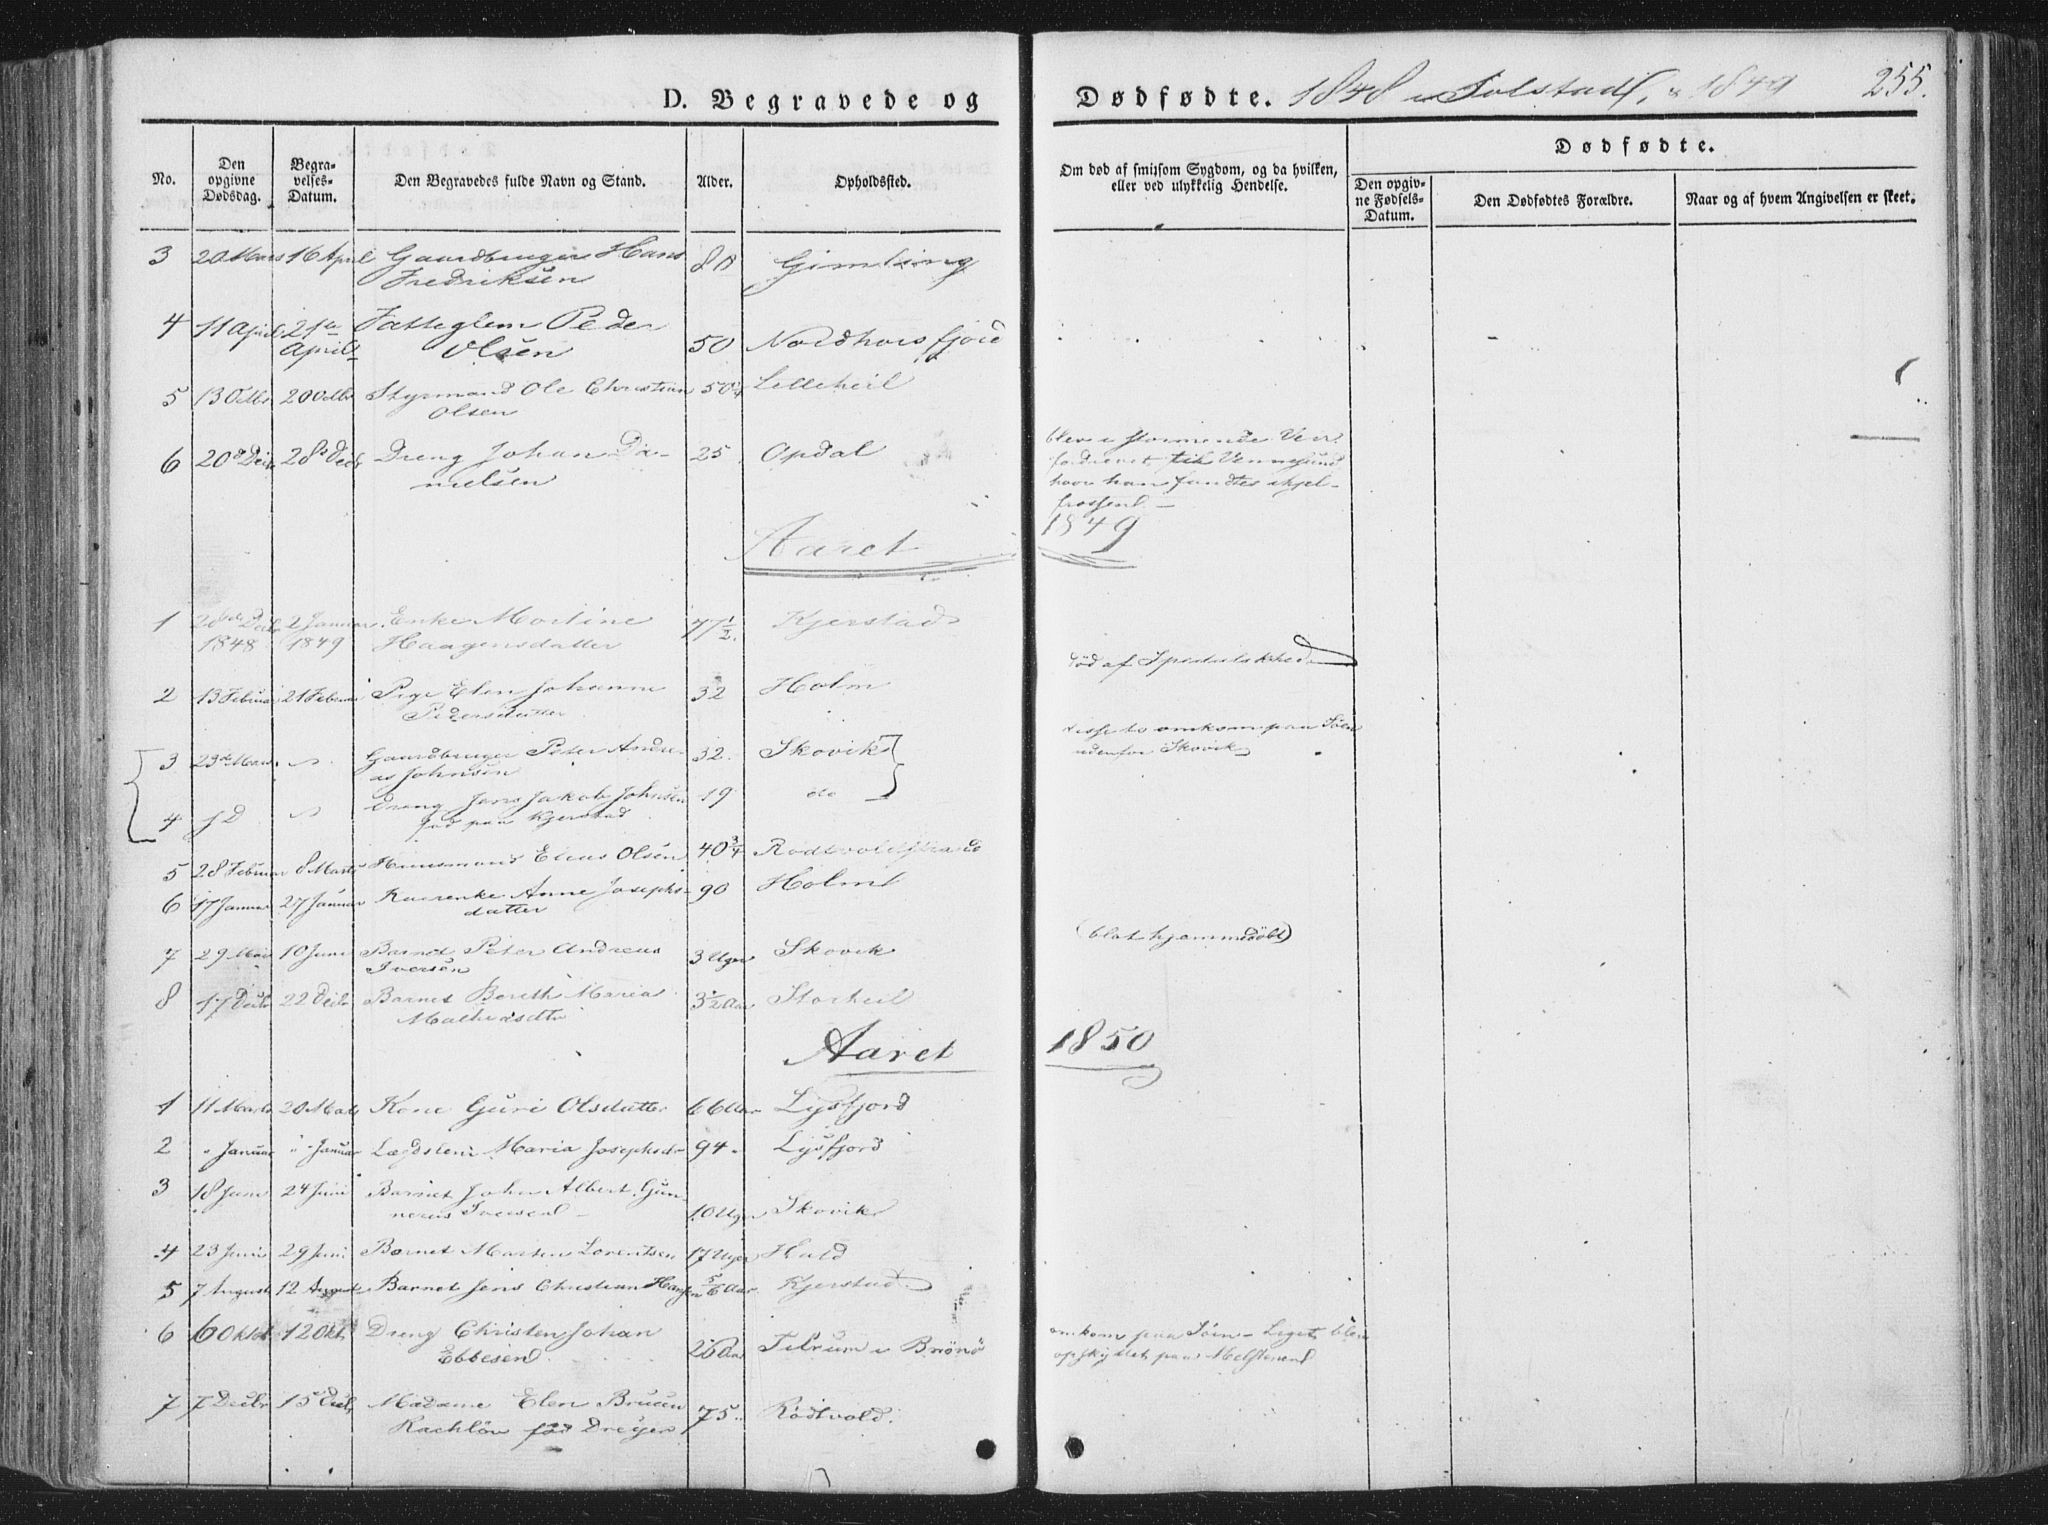 D. Begravede og Dødfødte. 1848 Solstad, 1849 255.
No.
Den opgivne Dødsdag.
Begra-velses-Datum.
Den Begravedes fulde Navn og Stand.
Alder.
Opholdssted.
Om død af smitsom Sygdom, og da hvilken, eller ved ulykkelig Hendelse.
Dødfødte.
Den opgiv-ne Fødsels-Datum.
Den Dødfødtes Forældre.
Naar og af hvem Angivelsen er skeet.
3 20 Mars 16 April Gaardbruger Hans 80 Gimling
Fredriksen
4 11 April 21 Peder 50 Nordhorsfjord
April Olsen
5 13 Octbr 20 Octbr Styrmand Ole Christian 50 Lilleheil
Olsen
6 20 Decbr 28 Decbr Dreng Johan Da- 25 Opdal
nielsen
blev i
til Vennesund
hvor han fandtes ihjel-
frossen
Aaret 1849
1 28de Decbr 2 Januar Enke Martine 77 1/2 Kjerstad
1848 1849 Haagensdatter
død af Spedalskhed
2 13 Februar 21 Februar Pige Elen Johanne 32 Holm
Pedersdatter
disse to omkom paa Söen
udenfor Skovik
3 23de Mars " Gaardbruger Peter Andre- 32 Skovik
as Johnsen
4 " Dreng Jens Jakob Johnsen 19 do
fød paa Kjerstad
5 28 Februar 8 Marts Huusmand Elias Olsen 40 3/4 Rödtvoldstrand
6 17 Januar 27 Januar Anne Josephs- 90 Holm
datter
7 29 Mai 10 Juni Barnet Peter Andreas 3 Uger Skovik (blot hjemmedöbt)
Iversen
8 17 Decbr 22 Decbr Barnet Bereth Maria 3 1/2 Aar Storheil
Aaret 1850
1 11 Marts 20 Marts Kone Guri Olsdatter 66 Aar Lysfjord
2 " Januar " Januar Maria Josephsdr 94 Lysfjord
3 18 Juni 24 Juni Barnet John Albert Gun-
nerus Iversen 10 Uger Skovik
4 23 Juni 29 Juni Barnet Morten Lorentsen 17 Uger Hald
5 7 August 12 August Barnet Jens Christian Hansen 5/6 Aar Kjerstad
6 6 Oktbr 12 Oktbr Dreng Christen Johan 26 Aar Tilrum i Brönö
Ebbesen
omkom paa Söen - Liget blev
opskyllet paa
7 7 Decbr 15 Decbr Madame Elen Bruun 75 Rödtvold
Rachlöw fød Dreyer